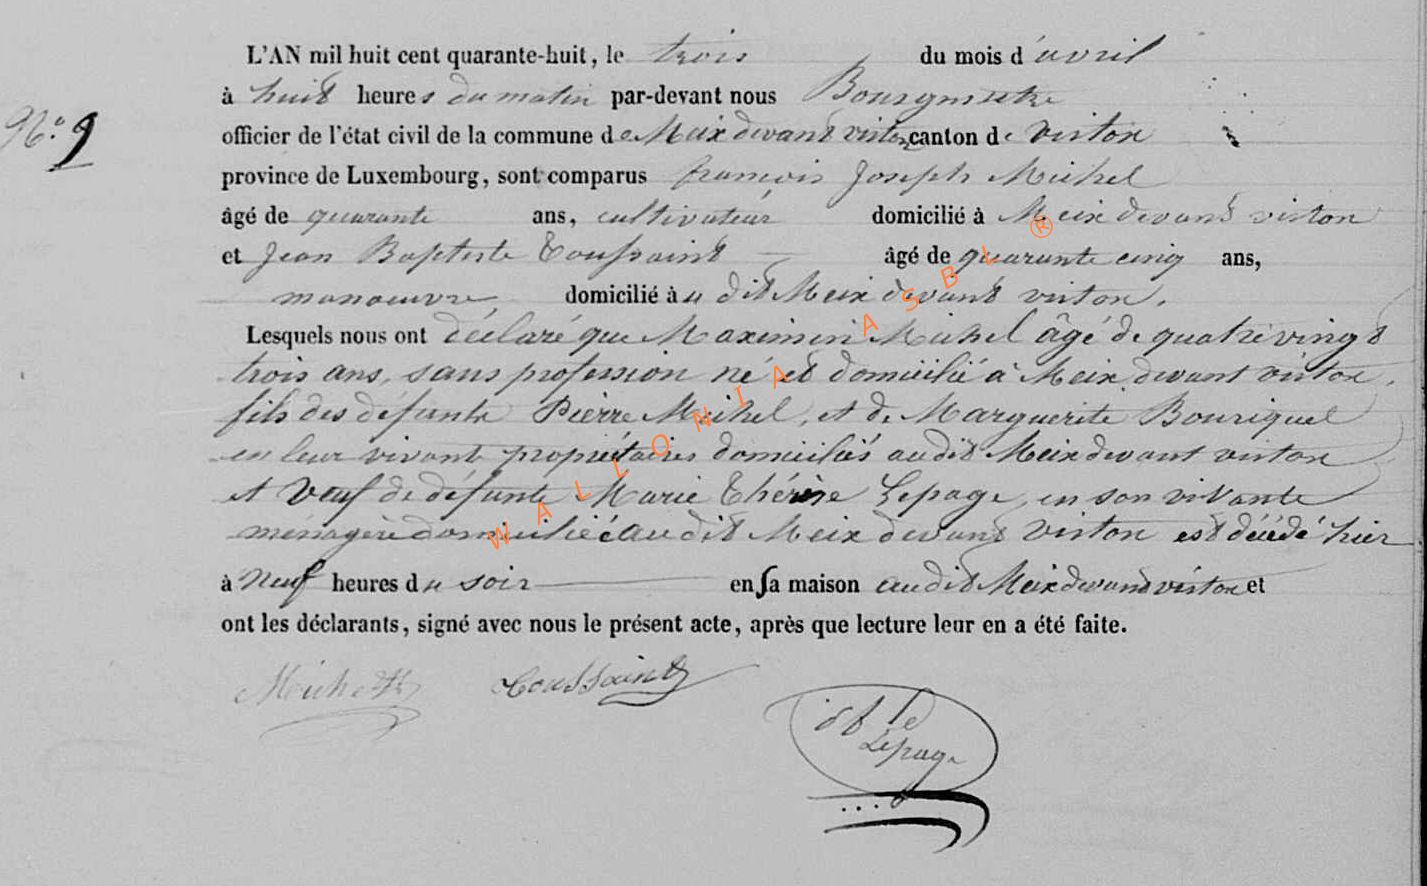 L'AN mil huit cent quarante-huit, le trois du mois d'avril
à huit heures du matin par-devant nous Bourgmestre
N° 9
officier de l'état civil de la commune de Meix devant virton canton de Virton
province de Luxembourg, sont comparus françois Joseph Michel
âgé de quarante ans, cultivateur domicilié à Meix devant virton
et Jean Baptiste Toussaint âgé de quarante cinq ans,
manoeuvre domicilié au dit Meix devant virton.
Lesquels nous ont déclaré que Maximin Michel âgé de quatre vingt
trois ans, sans profession né et domicilié à Meix devant virton,
fils des défunts Pierre Michel, et de Marguerite Bouriquel
en leur vivant propriétaires domiciliés audit Meix devant virton
et Veuf de défunte Marie Thérèse Lepage, en son vivante
ménagère domiciliée au dit Meix devant virton est décédé hier
à Neuf heures du soir en sa maison audit Meix devant virton et
ont les déclarants, signé avec nous le présent acte, après que lecture leur en a été faite.
Toussaint
Lepage
WALLONIA ASBL ®